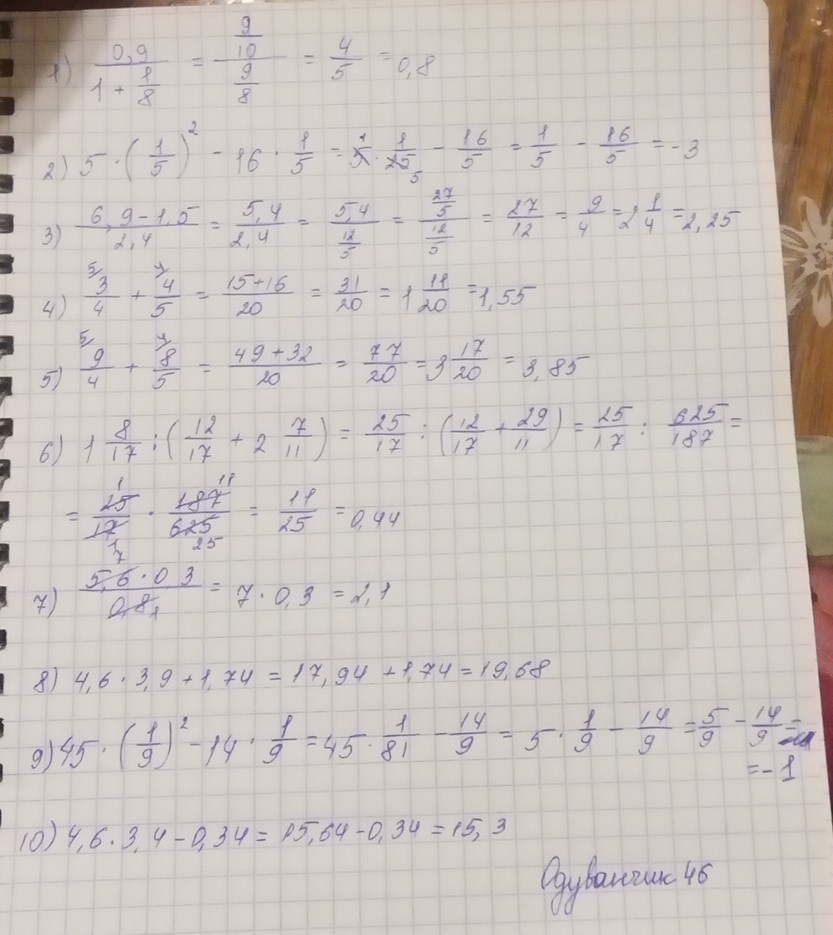 1) 0,9 / (1 + 1/8) = (9/10) / (9/8) = 4/5 = 0,8
2) 5 · (1/5)² - 16 · 1/5 = 5 · 1/25 - 16/5 = 1/5 - 16/5 = -3
3) (6,9 - 1,5) / 2,4 = 5,4 / 2,4 = 5,4 / (12/5) = (27/5) / (12/5) = 27/12 = 9/4 = 2 1/4 = 2,25
4) 3/4 + 4/5 = (15+16)/20 = 31/20 = 1 11/20 = 1,55
5) 9/4 + 8/5 = (49+32)/20 = 77/20 = 3 17/20 = 3,85
6) 1 8/17 : (12/17 + 2 7/11) = 25/17 : (12/17 + 29/11) = 25/17 : 625/187 =
= 25/17 · 187/625 = 11/25 = 0,44
7) (5,6 · 0,3) / 0,8 = 7 · 0,3 = 2,1
8) 4,6 · 3,9 + 1,74 = 17,94 + 1,74 = 19,68
9) 45 · (1/9)² - 14 · 1/9 = 45 · 1/81 - 14/9 = 5 · 1/9 - 14/9 = 5/9 - 14/9 =
= -1
10) 4,6 · 3,4 - 0,34 = 15,64 - 0,34 = 15,3
Одуванчик 46